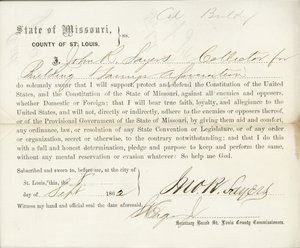 State of Missouri, } ss.
COUNTY OF ST. LOUIS.
I, John R. Sayers Collector for
Building & Savings Association
do solemnly swear that I will support, protect and defend the Constitution of the United
States, and the Constitution of the State of Missouri, against all enemies and opposers,
whether Domestic or Foreign; that I will bear true faith, loyalty, and allegiance to the
United States, and will not, directly or indirectly, adhere to the enemies or opposers thereof,
or of the Provisional Government of the State of Missouri, by giving them aid and comfort, any
ordinance, law, or resolution of any State Convention or Legislature, or of any order
or organization, secret or otherwise, to the contrary notwithstanding; and that I do this
with a full and honest determination, pledge and purpose to keep and perform the same,
without any mental reservation or evasion whatever. So help me God.
Subscribed and sworn to, before me, at the city of
St. Louis, this the
day of Sept 1862
Jno R. Sayers
Witness my hand and official seal the date aforesaid.
Secretary Board St. Louis County Commissioners.